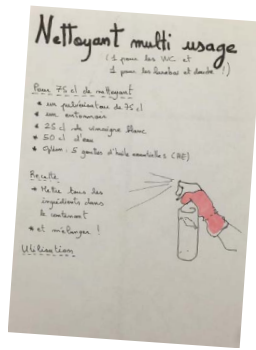 Nettoyant multi usage
(1 pour les WC et
1 pour les lavabos et douche !)
Pour 75 cl de nettoyant
* un pulvérisateur de 75 cl
* un entonnoir
* 25 cl de vinaigre blanc
* 50 cl d'eau
* : 5 gouttes d'huile essentielles (HE)
Recette
* Mettre tous les
ingrédients dans
le contenant
* et mélanger !
Utilisation